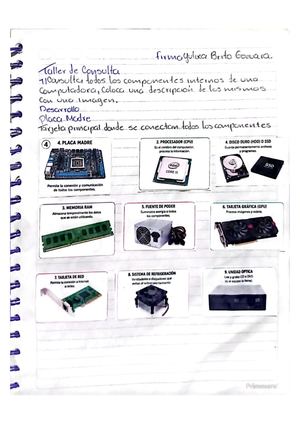 Firma Yulixa Brito Guevara.
Taller de Consulta
1) Consultar todos los componentes internos de una
Computadora, Coloca una descripción de los mismos
con una imagen.
Desarrollo
Placa Madre
Tarjeta principal donde se conectan todos los componentes
4
4. PLACA MADRE
Permite la conexión y comunicación
de todos los componentes.
2. PROCESADOR (CPU)
Es el cerebro del computador,
procesa la información.
CORE i5
4. DISCO DURO (HDD) O SSD
Guarda permanentemente archivos
y programas.
SSD
3. MEMORIA RAM
Almacena temporalmente los datos
que se están utilizando.
5. FUENTE DE PODER
Suministra energía a todos
los componentes.
6. TARJETA GRÁFICA (GPU)
Procesa imágenes y videos.
7. TARJETA DE RED
Permite la conexión a Internet
o redes.
8. SISTEMA DE REFRIGERACIÓN
9. UNIDAD OPTICA
Lee y graba CD o DVD